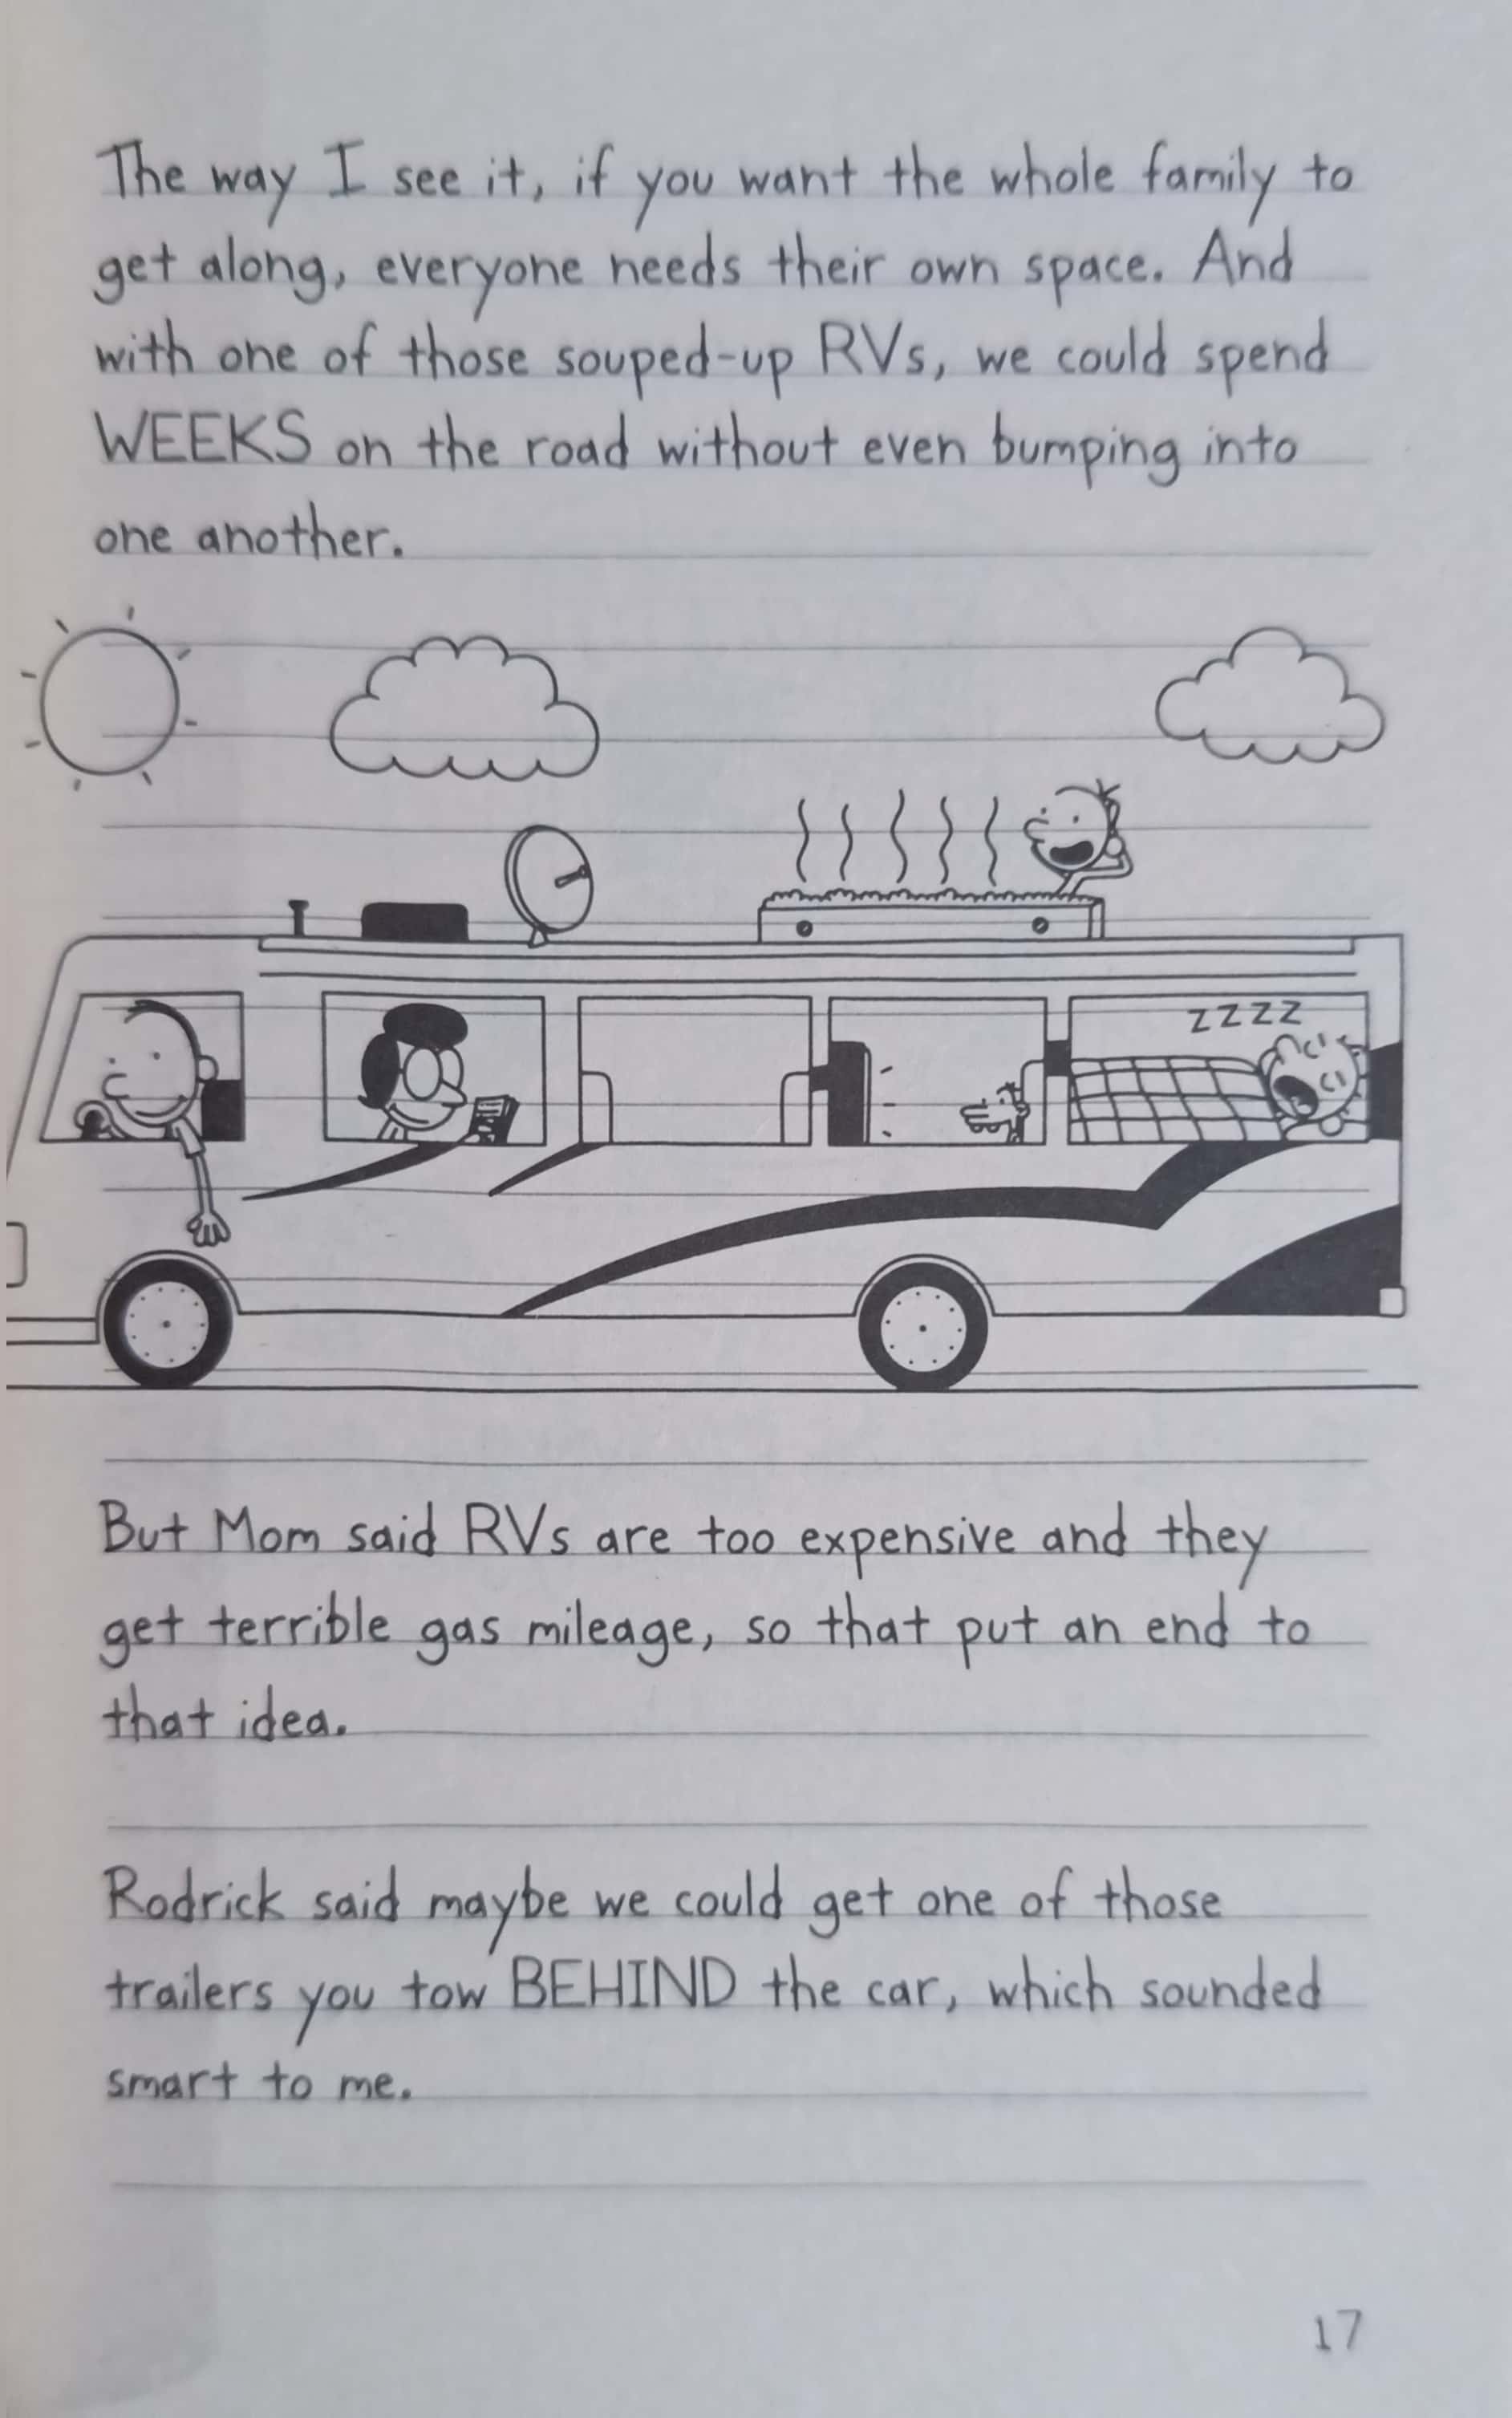 The way I see it, if you want the whole family to
get along, everyone needs their own space. And
with one of those souped-up RVs, we could spend
WEEKS on the road without even bumping into
one another.
ZZZZ
But Mom said RVs are too expensive and they
get terrible gas mileage, so that put an end to
that idea.
Rodrick said maybe we could get one of those
trailers you tow BEHIND the car, which sounded
smart to me.
17